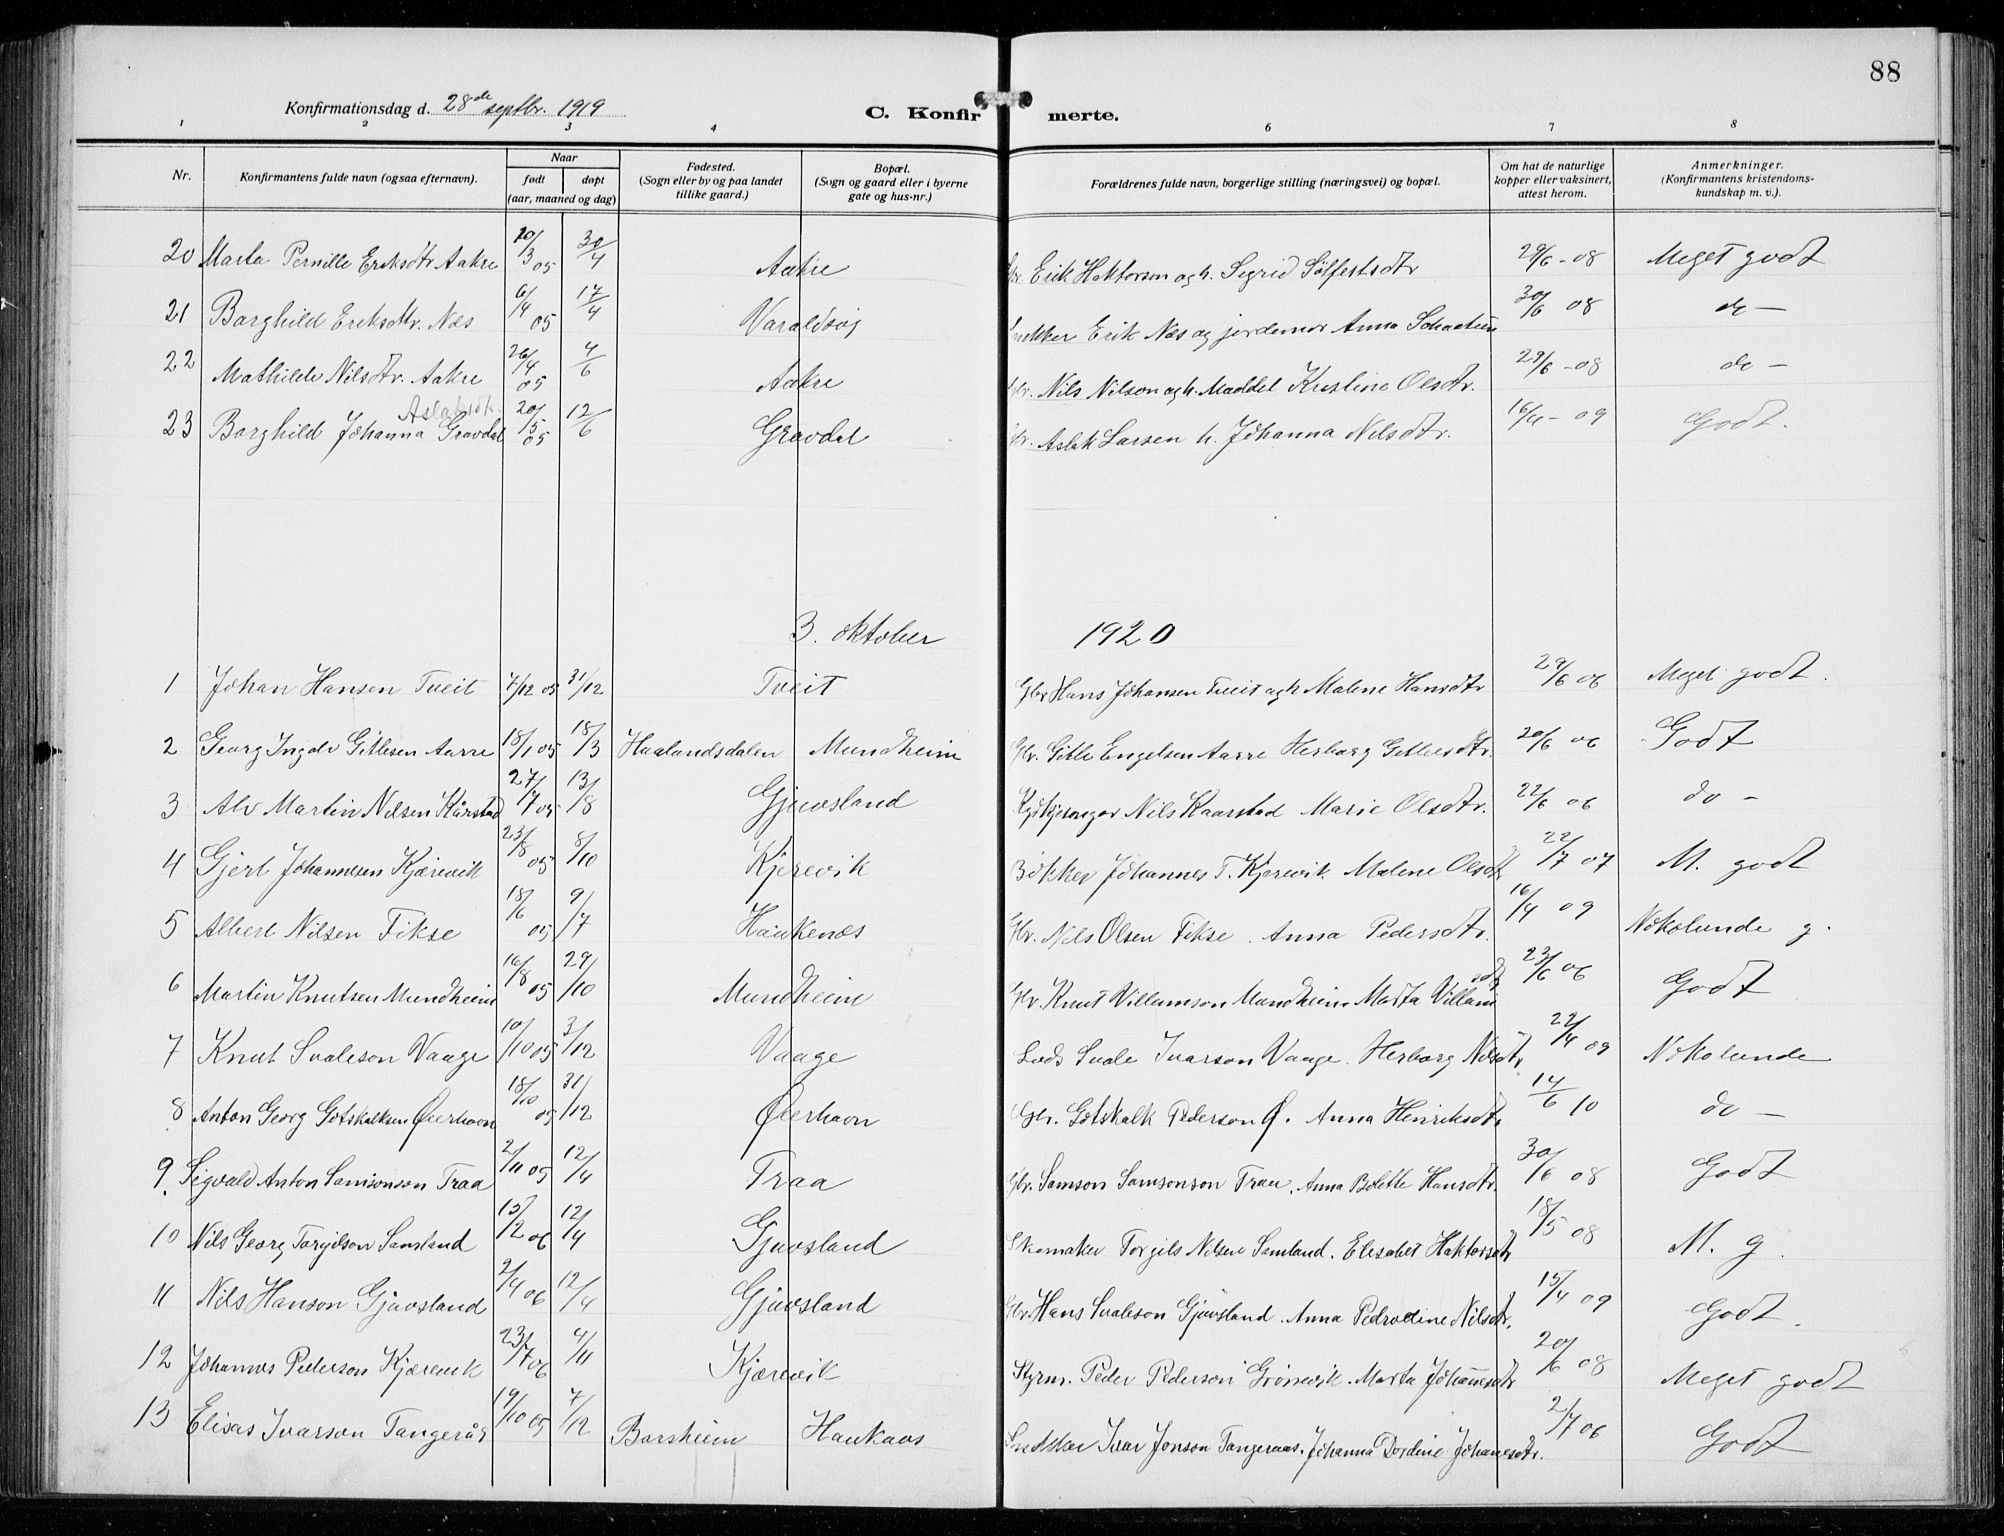 88
Konfirmationsdag d. 28de septbr. 1919
C. Konfirmerte.
1 2 3 4 6 7 8
Nr.
Konfirmantens fulde navn (ogsaa efternavn).
Naar
født døpt
(aar, maaned og dag)
Fødested.
(Sogn eller by og paa landet
tillike gaard.)
Bopæl.
(Sogn og gaard eller i byerne
gate og hus-nr.)
Forældrenes fulde navn, borgerlige stilling (næringsvei) og bopæl.
Om hat de naturlige
kopper eller vaksinert,
attest herom.
Anmerkninger.
(Konfirmantens kristendoms-
kundskap m. v.).
20 Marta Pernille Eriksdtr Aakre 20/3 05 30/4 Aakre Gbr. Erik Haktorson og h. Sigrid Sølfestsdtr 29/6 - 08 Meget godt
21 Borghild Eriksdtr. Næs 6/4 05 17/4 Varaldsøy Snekker Erik Næs og jordemor Anna 30/6 08 do -
22 Mathilde Nilsdtr. Aakre 26/4 05 4/6 Aakre Gbr. Nils Nilson og h. Maddel Kristine Olsdtr. 29/6 - 08 do -
Aslaksdtr.
23 Borghild Johanna Gravdal 20/5 05 12/6 Gravdal Gbr. Aslak Larsen h. Johanna Nilsdtr. 16/4 - 09 Godt.
3. oktober 1920
1 Johan Hansen Tveit 7/12 05 31/12 Tveit Gbr Hans Johansen Tveit og h Malene Hansdtr 29/6 06 Meget godt.
2 Georg Ingolv Gitlesen Aarre 18/1 05 18/3 Haalandsdalen Mundheim Gbr. Gitle Engelsen Aarre Herborg Gitlesdtr 20/6 06 Godt
3 Alv Martin Nilsen Kårstad 27/7 05 13/8 Gjuvsland Kirkjesongar Nils Kaarstad Marie Olsdtr. 22/6 06 do -
4 Gjert Johannesen Kjærevik 23/8 05 8/10 Kjerevik Bøkker Johannes T. Kjerevik. Malene Olsdtr 22/7 07 M. godt
5 Albert Nilsen Fikse 18/6 05 9/7 Haukenæs Gbr. Nils Olsen Fikse. Anna Pedersdtr. 16/4 09 Nokolunde g.
6 Martin Knutsen Mundheim 16/8 05 29/10 Mundheim Gbr. Knut Villumson Mundheim Marta Villumsdtr 23/6 06 Godt
7 Knut Svaleson Vaage 10/10 05 3/12 Vaage Lods Svale Ivarson Vaage. Herborg Nilsdtr 22/4 09 Nokolunde
8 Anton Georg Gotskalksen Øierhavn 18/10 05 31/12 Øierhavn Gbr. Gotskalk Pederson Ø. Anna Henriksdtr. 14/6 10 do -
9. Sigvald Anton Samsonson Traa 2/11 05 12/4 Traa Gbr. Samson Samsonson Traa. Anna Bolette Hansdtr. 30/6 08 Godt
10 Nils Georg Torgilson Samland 13/2 06 12/4 Gjuvsland Skomaker Torgils Nilsen Samland. Elisabet Haktorsdtr 18/5 08 M. g.
11 Nils Hanson Gjuvsland 2/4 06 12/4 Gjuvsland Gbr. Hans Svaleson Gjuvsland. Anna Pedrodine Nilsdtr. 15/4 09 Godt.
12 Johannes Pederson Kjærevik 23/7 06 4/11 Kjærevik Styrm. Peder Pederson Grønevik. Marta Johannesdtr 20/6 08 Meget godt
13 Elisas Ivarson Tangerås 19/10 05 7/12 Borsheim Haukaas Snedker Ivar Jonson Tangeraas. Johanna Dordine Johanesdtr. 2/7 06 Godt